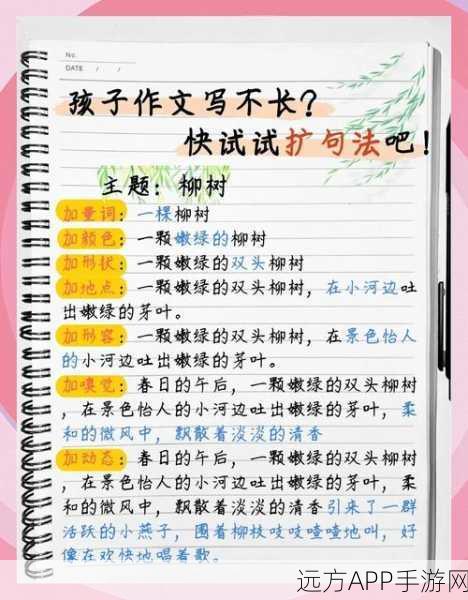 No.
DATE / /
孩子作文写不长?
快试试扩句法吧!
主题: 柳树
加量词: 一棵柳树
加颜色: 一颗嫩绿的柳树
加形状: 一颗嫩绿的双头柳树
加地点: 一颗嫩绿的双头柳树, 在小河边吐
出嫩绿的芽叶。
加形容: 一颗嫩绿的双头柳树, 在景色怡人
的小河边吐出嫩绿的芽叶。
加嗅觉: 春日的午后, 一颗嫩绿的双头柳树
, 在景色怡人的小河边吐出嫩绿的芽叶, 柔
和的微风中, 飘散着淡淡的清香
加动态: 春日的午后, 一颗嫩绿的双头柳树
, 在景色怡人的小河边吐出嫩绿的芽叶, 柔
和的微风中, 飘散着淡淡的清香引来了一群
活跃的小燕子, 围着柳枝吱吱喳喳地叫, 好
像在欢快地唱着歌。
远方APP手游网